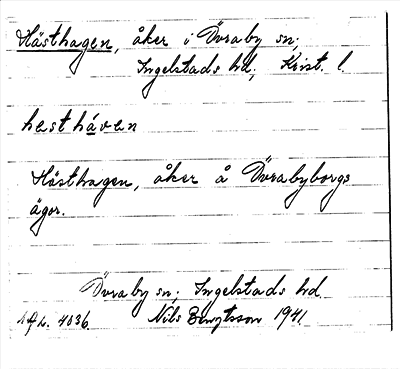 Hästhagen, åker i Övraby sn;
Ingelstads hd, Krist. l.
hesthávɐn
Hästhagen, åker å Övrabyborgs
ägor.
Övraby sn; Ingelstads hd.
4036. Nils Bengtsson 1941.